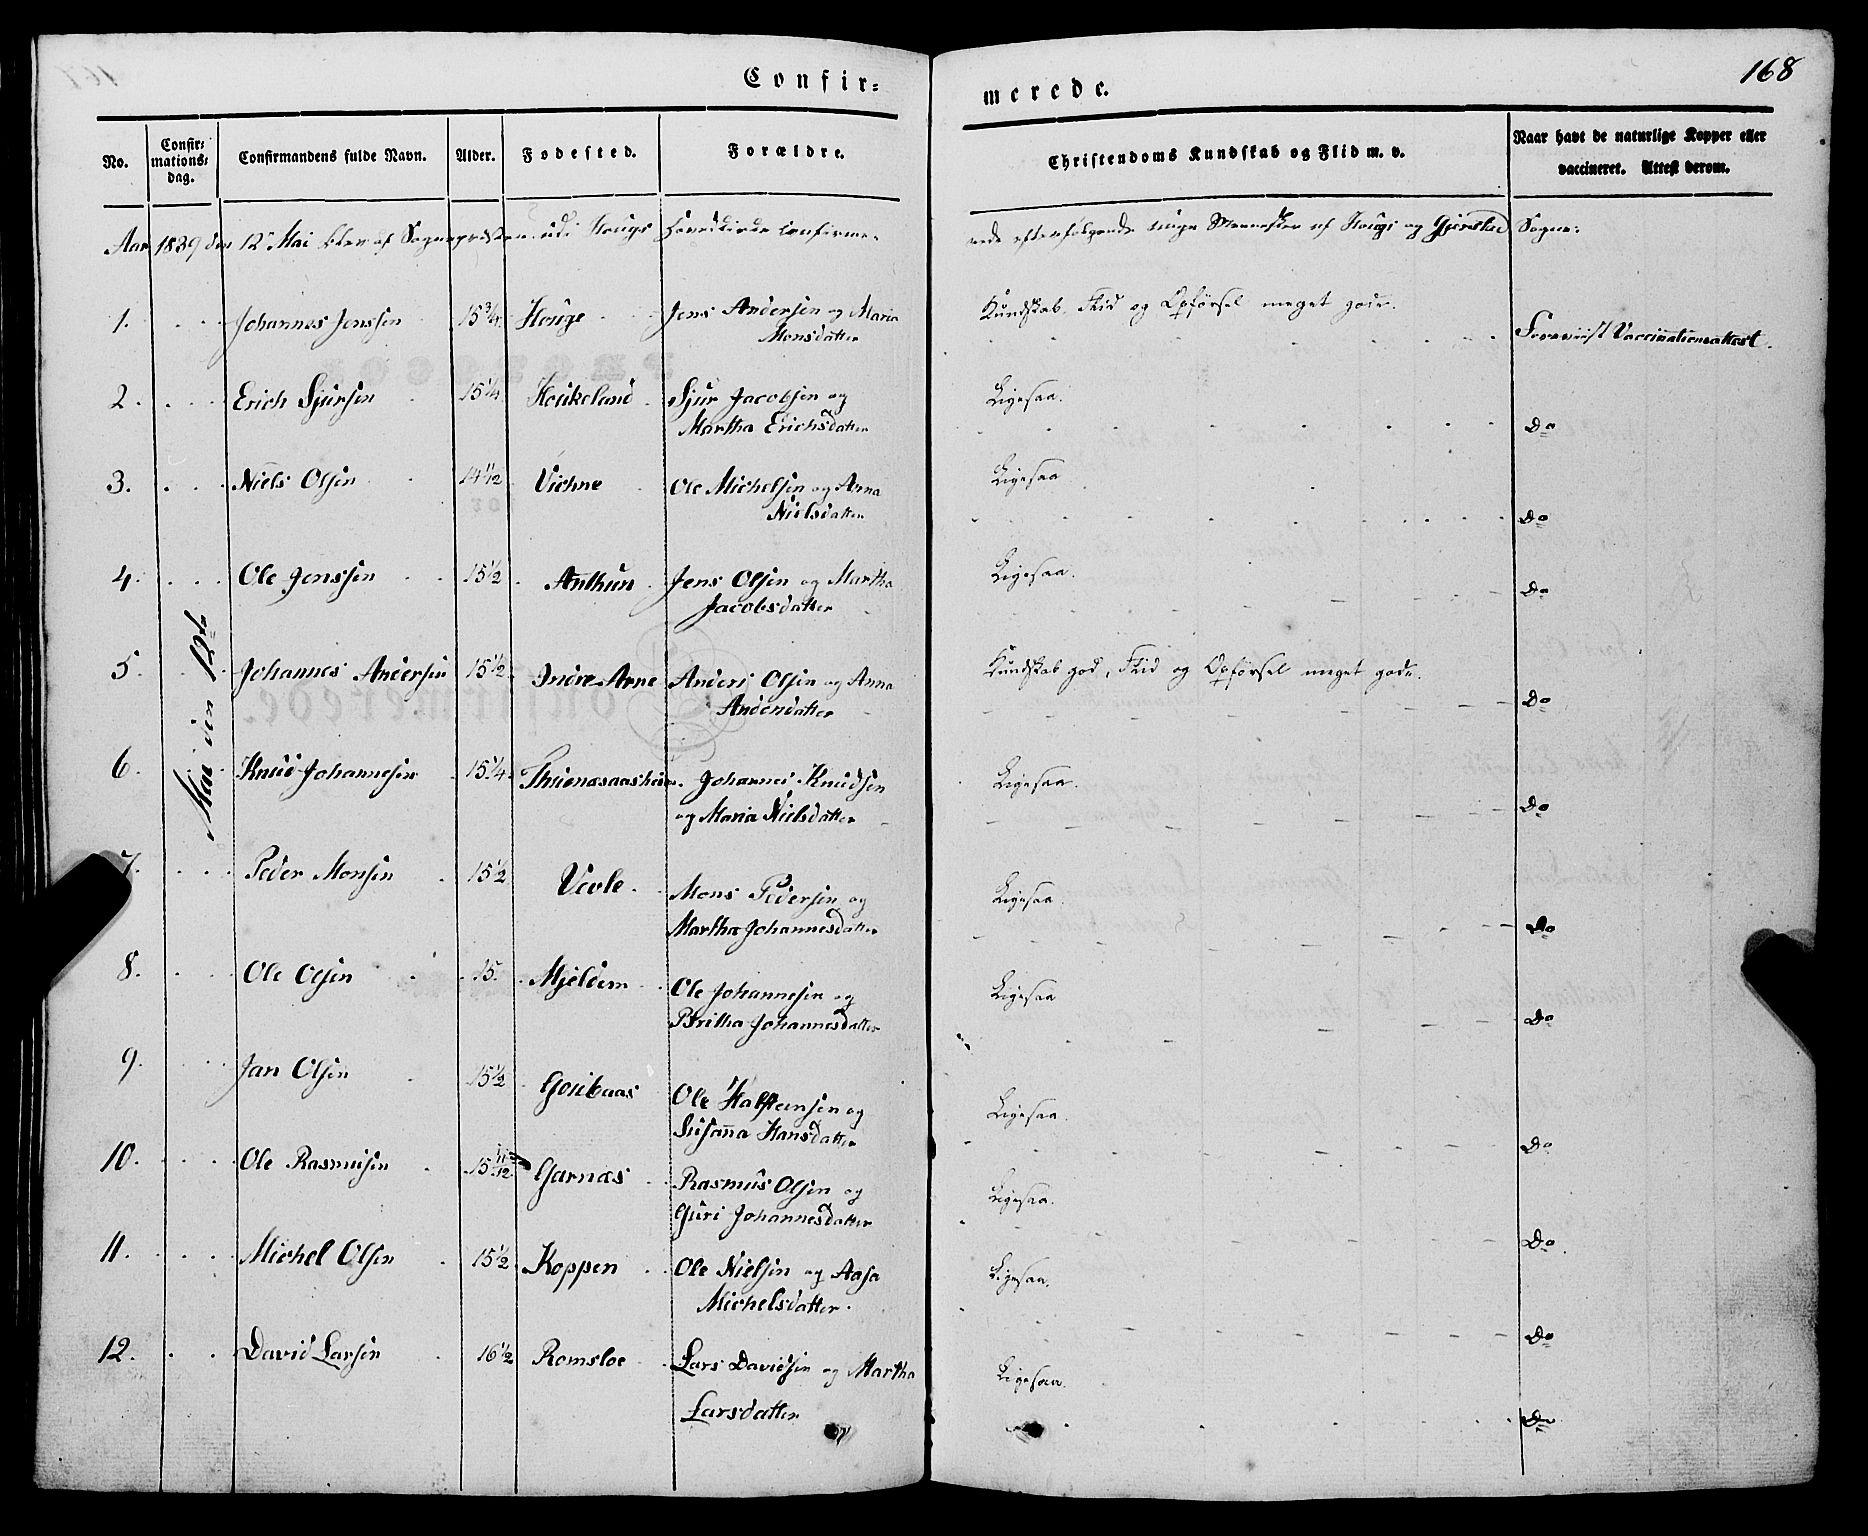 168
Confir=
merede.
No.
Confir=
mations=
dag.
Confirmandens fulde Navn.
Alder.
Fodested.
Forældre.
Christendoms Kundskab og Flid m. v.
Naar havt de naturlige Kopper eller
vaccineret. Attest derom.
Aar 1839 den 12te Mai blev af Sognepræsten udi Hougs Hovedkirke confirme-
rede efterfølgende unge Mennesker af Hougs og Gjerstad Sogne:
Mai den 12te
1. Johannes Jenssen 15 3/4 Houge Jens Andersen og Maria
Monsdatter
Kundskab, Flid og Opførsel meget gode.
Foreviist Vaccinationsattest.
2. Erich Sjursen 15 1/4 Houkeland Sjur Jacobsen og
Martha Erichsdatter
Ligesaa. Do
3. Niels Olsen 14 1/2 Viehne Ole Michelsen og Anna
Nielsdatter
Ligesaa Do
4. Ole Jenssen 15 1/2 Anthun Jens Olsen og Martha
Jacobsdatter
Ligesaa. Do
5. Johannes Andersen 15 1/2 Indre Arne Anders Olsen og Anna
Andersdatter
Kundskab god, Flid og Opførsel meget gode.
Do
6. Knud Johannesen 15 1/4 Johannes Knudsen
og Maria Nielsdatter
Ligesaa. Do
7. Peder Monsen 15 1/2 Vevle Mons Pedersen og
Martha Johannesdatter
Ligesaa. Do
8. Ole Olsen 15. Mjeldem Ole Johannesen og
Britha Johannesdatter
Ligesaa Do
9. Jan Olsen 15 1/2 Ole Halsteinsen og
Susanna Hansdatter
Ligesaa. Do
10. Ole Rasmusen 15 11/12 Garnæs Rasmus Olsen og
Guri Johannesdatter
Ligesaa. Do
11. Michel Olsen 15 1/2 Koppen Ole Nielsen og Aasa
Michelsdatter.
Ligesaa. Do
12. David Larsen 16 1/2 Romsloe Lars Davidsen og Martha
Larsdatter
Ligesaa. Do